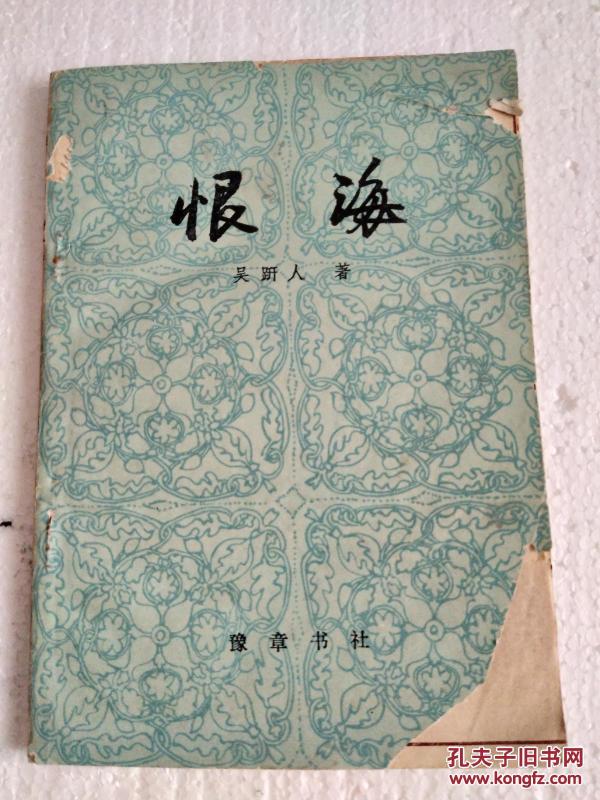 恨 海
吴趼人 著
豫章书社
孔夫子旧书网
www.kongfz.com